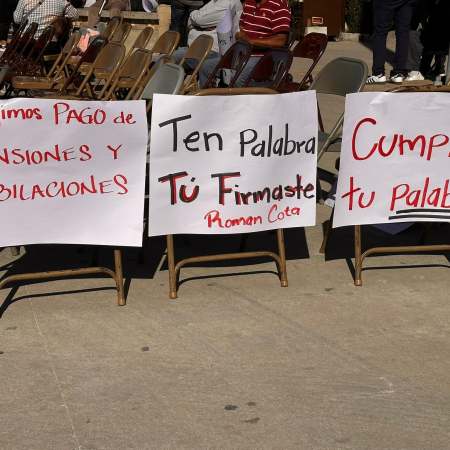 imos PAGO de
NSIONES Y
BILACIONES
Ten Palabra
TÚ Firmaste
Román Cota
Cump
tu Palab